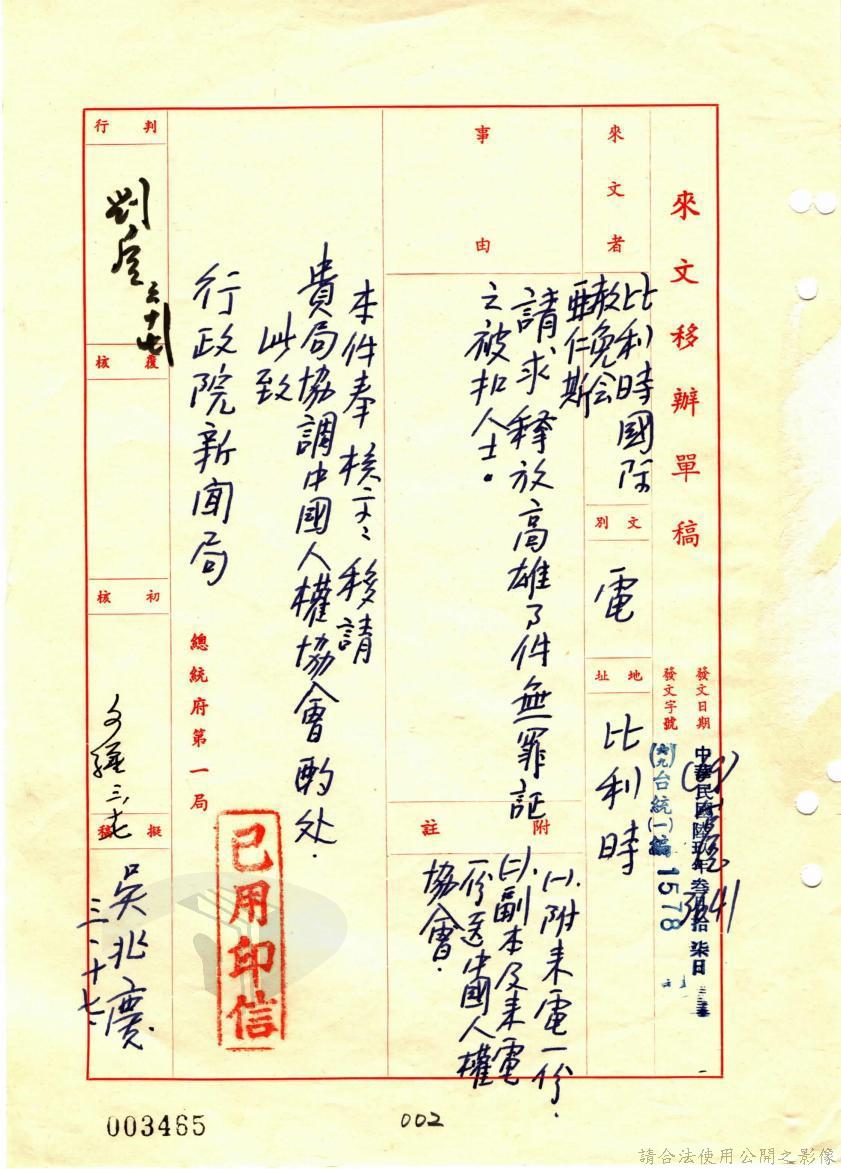 來文移辦單稿
發文日期
中華民國陸玖年叁月拾柒日
發文字號
(六九)台統(一)編
1578
3641
來文者
比利時國際
赦免会
亞仁斯
文別
電
地址
比利時
事由
請求釋放高雄事件無罪証
之被扣人士。
附註
(一)、附来電一份.
(二)、副本及来電
一份送中國人權
協會.
本件奉核交、移請
貴局協調中國人權協會酌处.
此致
行政院新聞局
總統府第一局
已用印信
判行
劉垕
三、十七
覆核
初核
三、十七
擬稿
吳兆慶
三、十七、
003465
002
請合法使用公開之影像